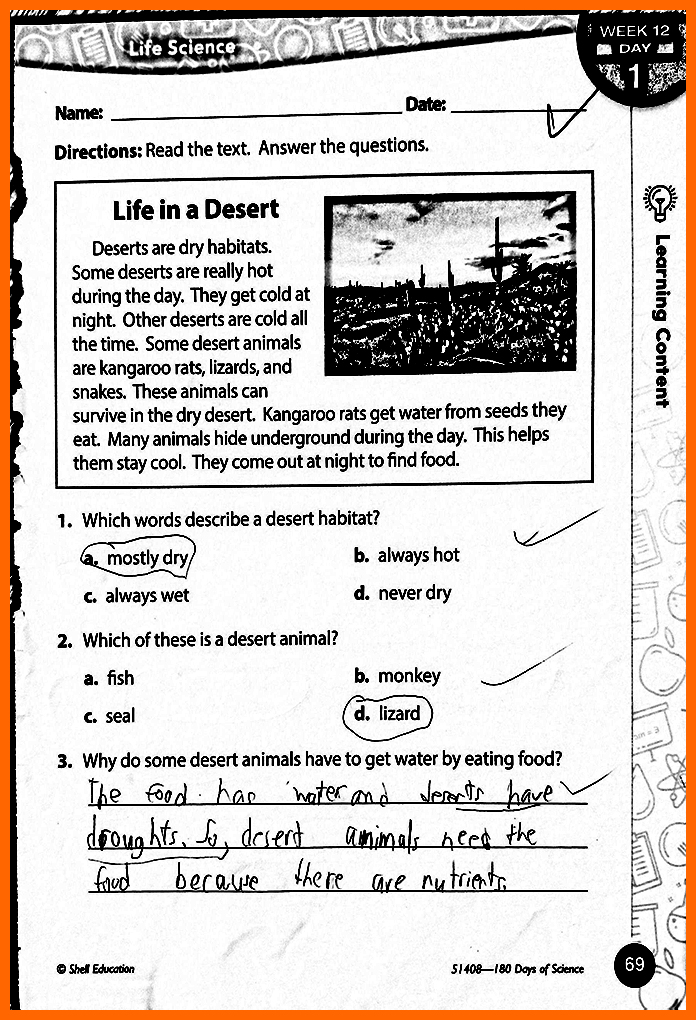 Life Science
WEEK 12
DAY
1
Name: Date:
Directions: Read the text. Answer the questions.
Learning Content
Life in a Desert
Deserts are dry habitats.
Some deserts are really hot
during the day. They get cold at
night. Other deserts are cold all
the time. Some desert animals
are kangaroo rats, lizards, and
snakes. These animals can
survive in the dry desert. Kangaroo rats get water from seeds they
eat. Many animals hide underground during the day. This helps
them stay cool. They come out at night to find food.
1. Which words describe a desert habitat?
a. mostly dry b. always hot
c. always wet d. never dry
2. Which of these is a desert animal?
a. fish b. monkey
c. seal d. lizard
3. Why do some desert animals have to get water by eating food?
The food has water and deserts have
droughts. So, desert amimals need the
food because there are nutrients.
© Shell Education 51408—180 Days of Science 69